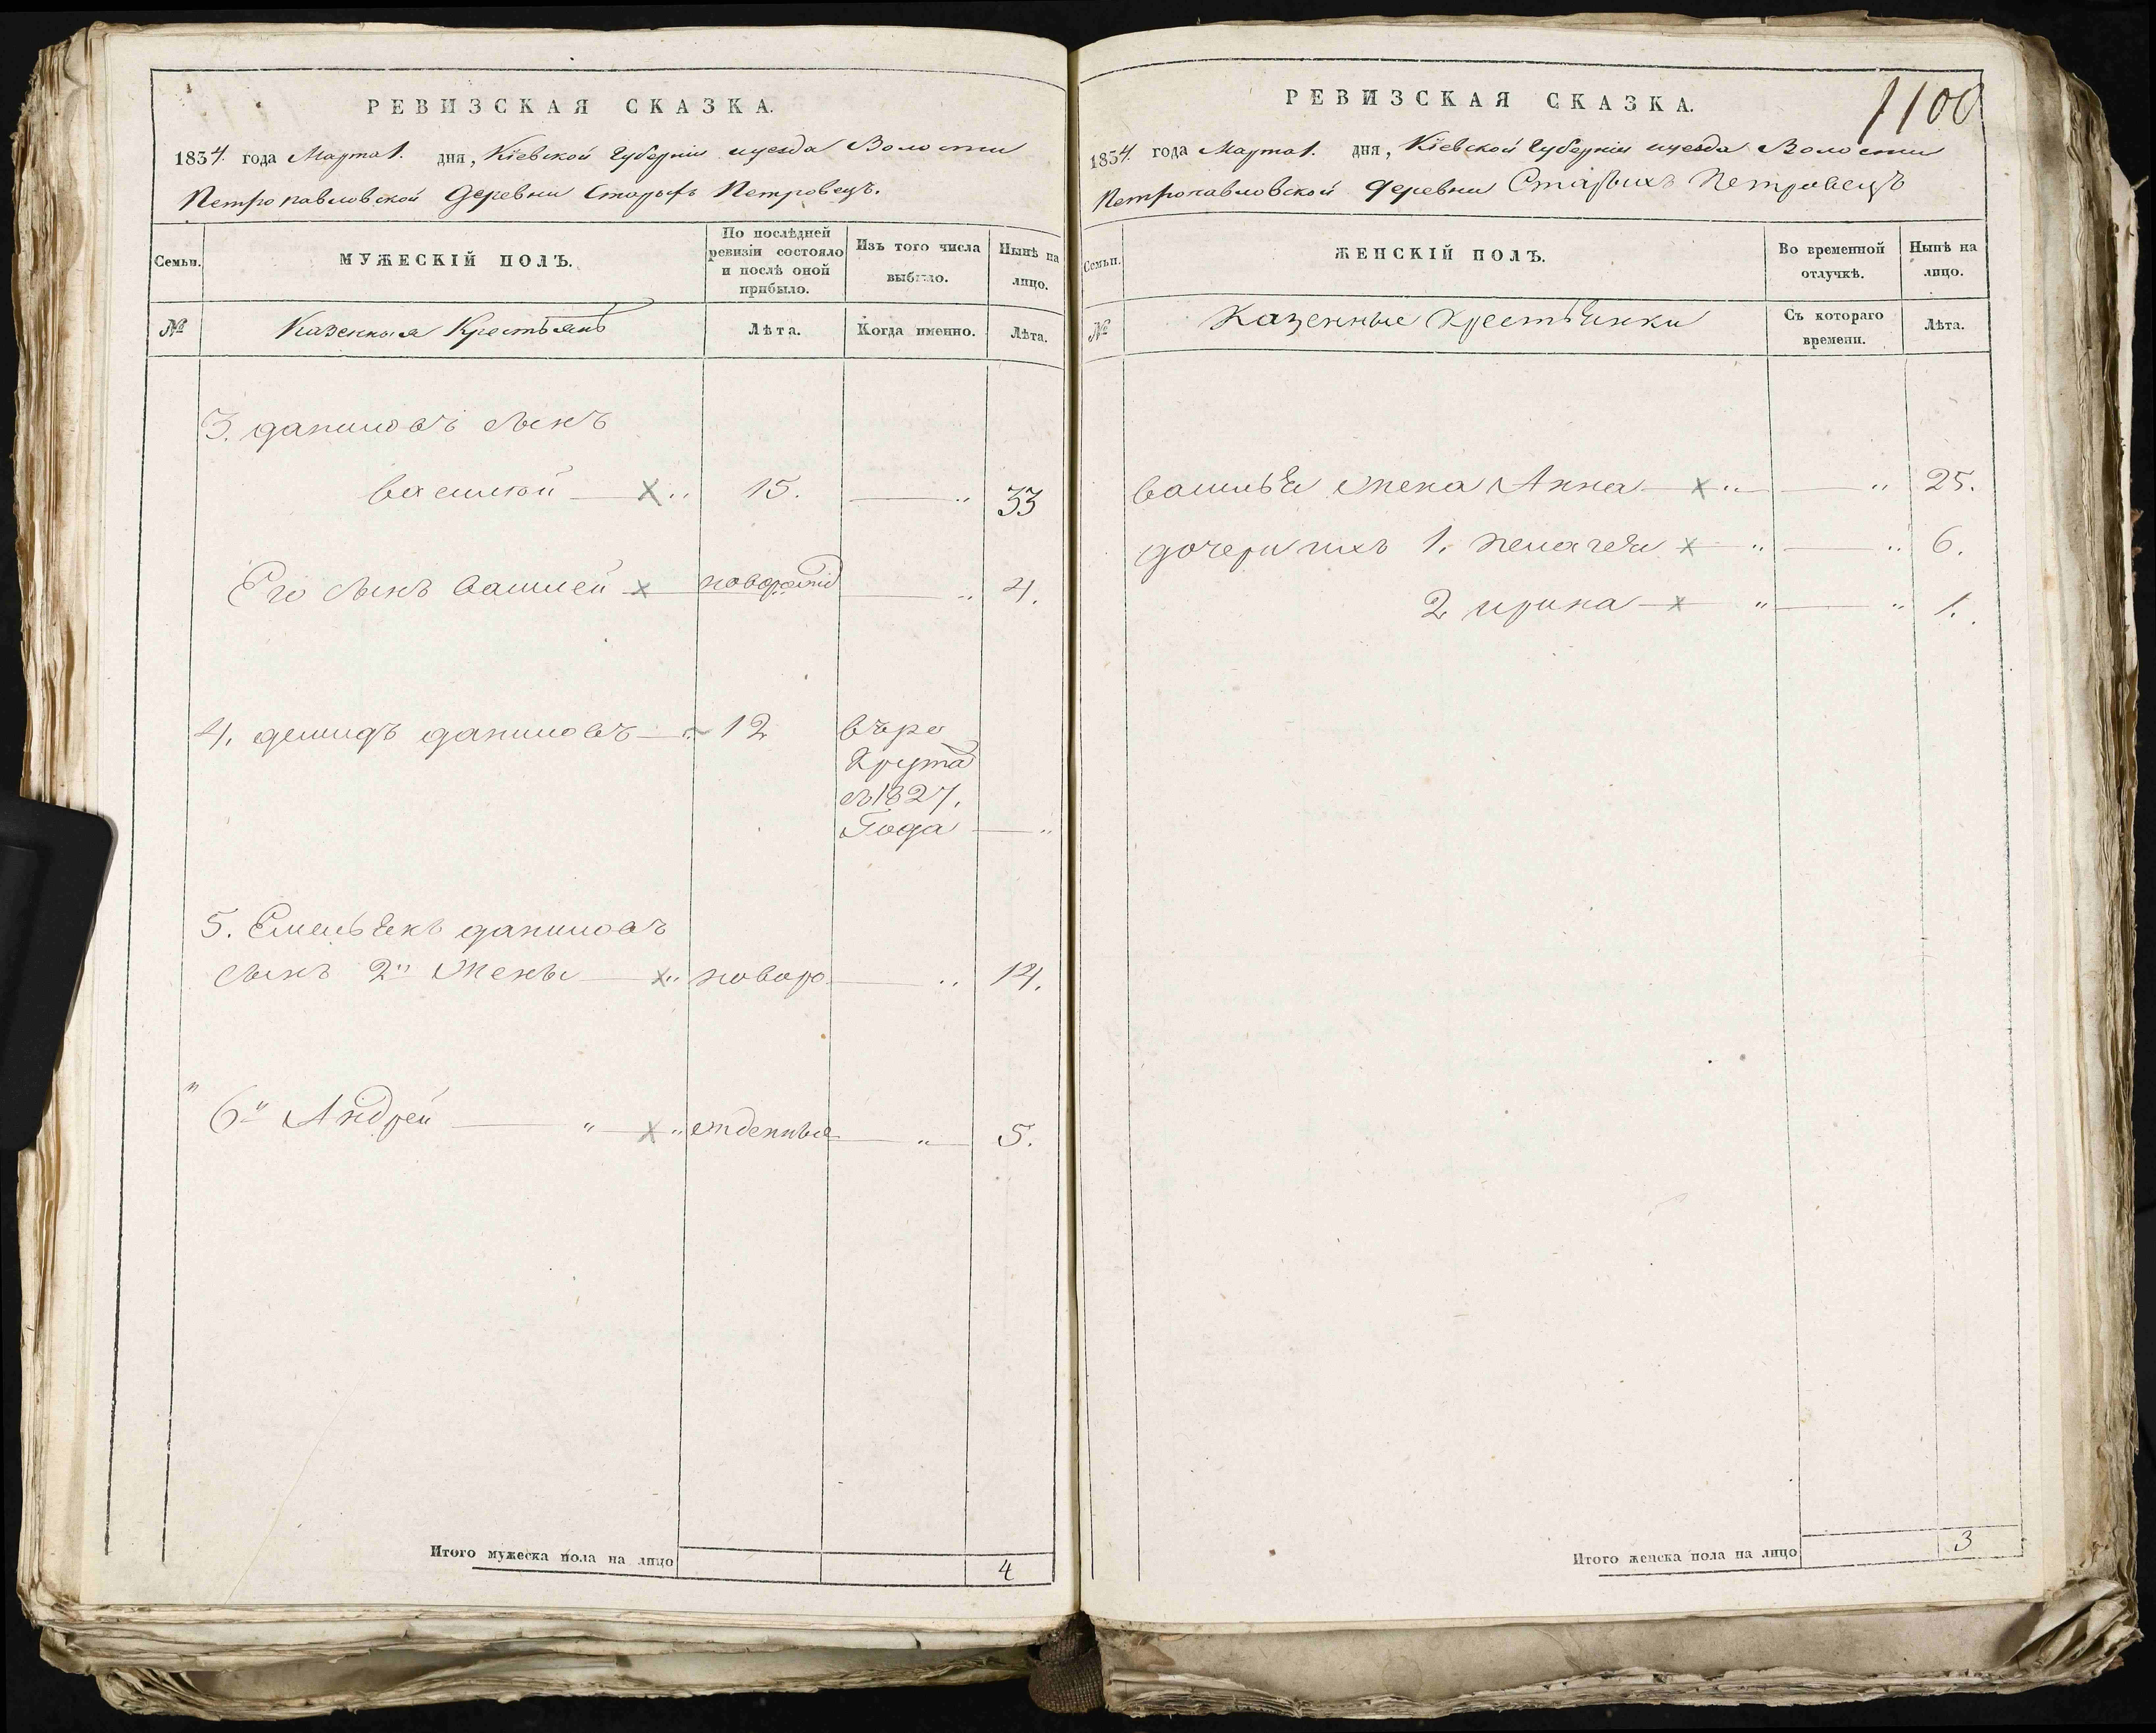 РЕВИЗСКАЯ СКАЗКА.
1834 года Марта 1. дня, Кіевской Губерніи уезда Волости
Петропавловской деревни Старыхъ Петровецъ.
Семьи.
МУЖЕСКІЙ ПОЛЪ.
По послѣдней ревизіи состояло и послѣ оной прибыло.
Изъ того числа выбыло.
Нынѣ на лицо.
№
Казенныя Крестьянъ
Лѣта.
Когда именно.
Лѣта.
3. даниловъ сынъ
василей — х „ 15. — „ 33
Его сынъ василей х новорожд — „ 4.
4. демидъ даниловъ — „ 12 въре
крута
съ 1827.
Года — „
5. Емельянъ даниловъ
сынъ 2й жены — х „ новоро — „ 14.
„ 6й Андрей — „ — х „ жденные — „ 5.
Итого мужеска пола на лицо 4
РЕВИЗСКАЯ СКАЗКА.
1100
1834 года Марта 1. дня, Кіевской Губерніи уезда Волости
Петропавловской деревни Старыхъ Петровецъ
Семьи.
ЖЕНСКІЙ ПОЛЪ.
Во временной отлучкѣ.
Нынѣ на лицо.
№
Казенные Крестьянки
Съ котораго времени.
Лѣта.
васильея жена Анна — х „ — „ 25.
дочери ихъ 1. пелагея х „ — „ 6.
2 ирина — х „ — „ 1.
Итого женска пола на лицо 3